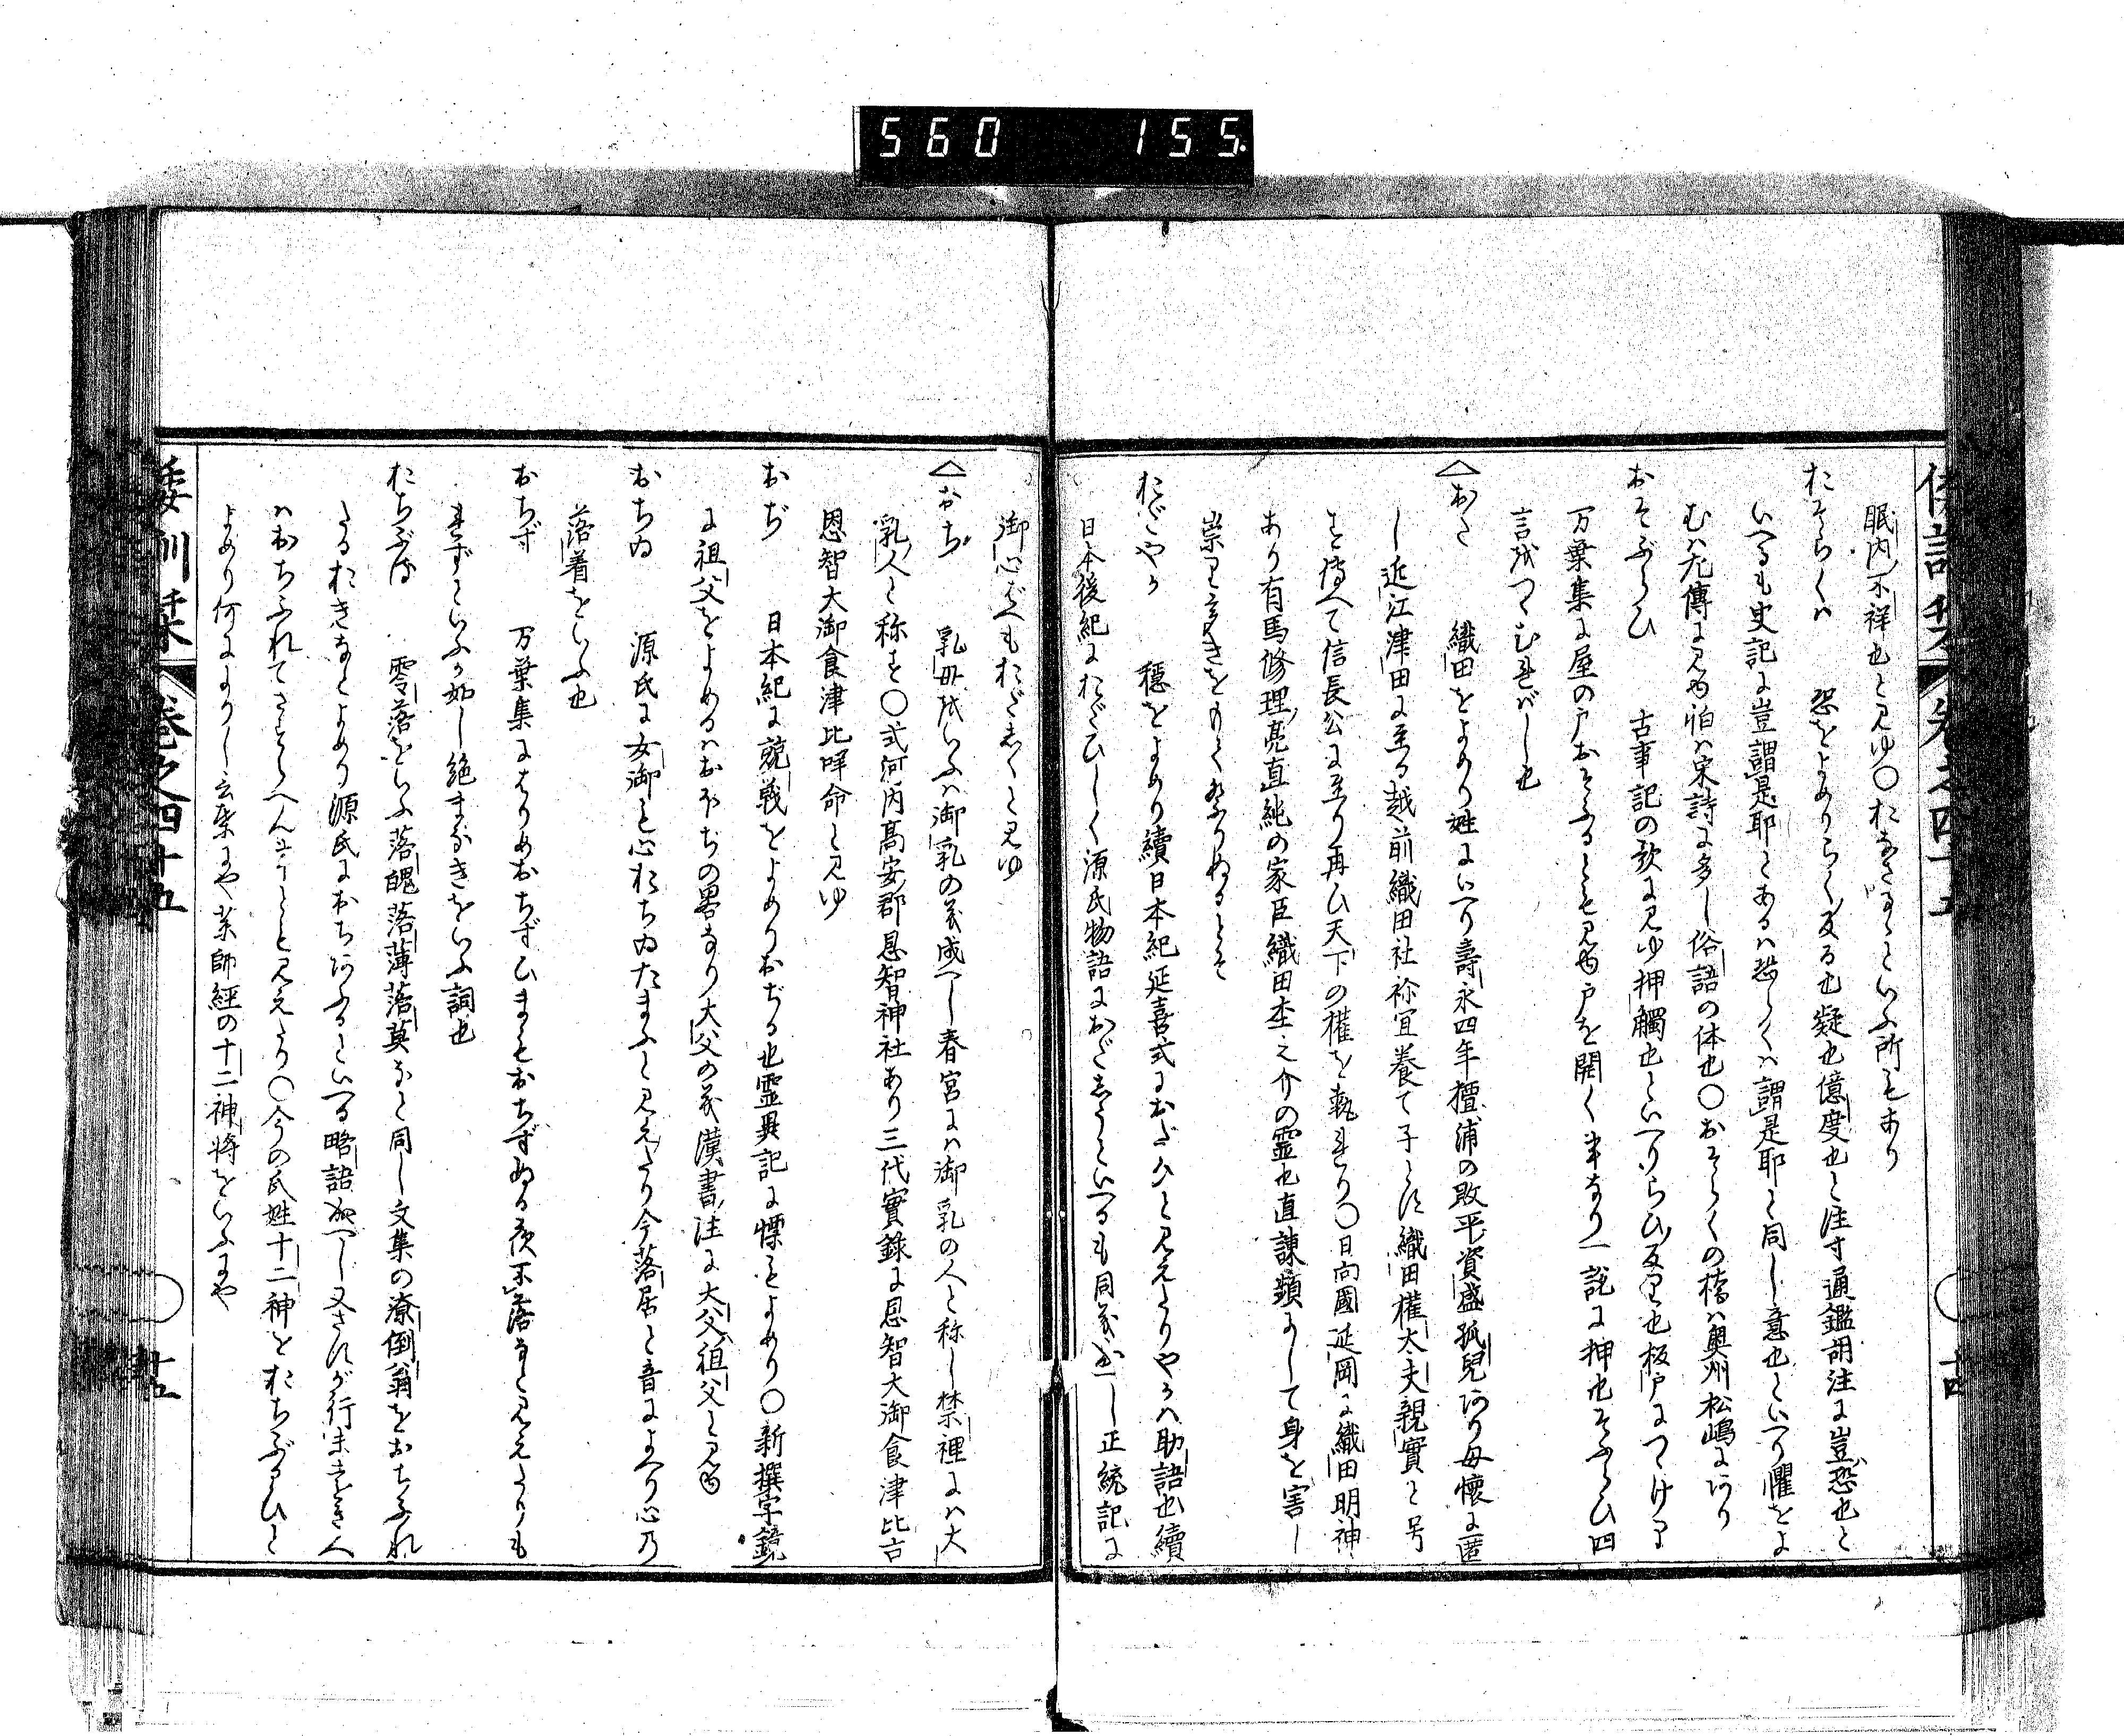 560 155.
眠内不祥也と見ゆ〇おなさるゝといふ所もあり
おそらくハ 恐をよめりらく反る也疑也億度也と注す通鑑胡注に豈恐也と
いへるも史記に豈謂是耶とあるハ恐らくハ謂是耶と同し意也といへり懼をよ
むハ左傳に見ゆ怕ハ宋詩に多し俗語の体也〇おそらくの橋ハ奥州松嶋にあり
おそぶらひ 古事記の歌に見ゆ押觸也といへりらひ反り也板戸につけり
万葉集に屋の戸おそふるとも見ゆ戸を開く事なり一説に押也そふらひ四
言或つくむればし也
△おた 織田をよめり姓にいへり壽永四年檀浦の敗平資盛孤兒あり母懐に匿
し近江津田に至る越前織田社祢宜養て子とす織田權太夫親實と号
を傳へて信長公に至り再ひ天下の權を執れり〇日向國延岡に織田明神
あり有馬修理亮直純の家臣織田杢之介の霊也直諫頻にして身を害し
おだやか 穏をよめり續日本紀延喜式におだひと見えたりやかハ助語也續
日本後紀におだひしく源氏物語におだしうといへるも同義也一し正統記に
御心ばへもおだしくと見ゆ
△おち 乳母をいふハ御乳の義成へし春宮にハ御乳の人と称し禁裡にハ大
乳人と称す〇式河内高安郡恩智神社あり三代實錄に恩智大御食津比古
恩智大御食津比咩命と見ゆ
おぢ 日本紀に兢戦をよめりおぢる也霊異記に慄をよめり〇新撰字鏡
に祖父をよめるハおほぢの畧なり大父の義漢書注に大父祖父と見ゆ
おちゐ 源氏に女御も心おちゐたまふと見えたり今落居と音によへり心乃
落着をいふ也
おちず 万葉集によりめおちずひまもおちずぬる夜不落なと見えたりも
れずといふか如し絶まなきをいふ詞也
おちぶる 零落をいふ落魄落薄落莫なと同し文集の潦倒翁をおちふれ
たるおきなとよめり源氏におちあふるといへる略語成へし又さすが行末とをきへ
ハおちふれてさすらへん云々とと見えたり〇今の氏姓十二神をおちぶるひと
よめり何によりし云葉にや薬師經の十二神將をいふにや
倭訓栞 巻之四十五 十五